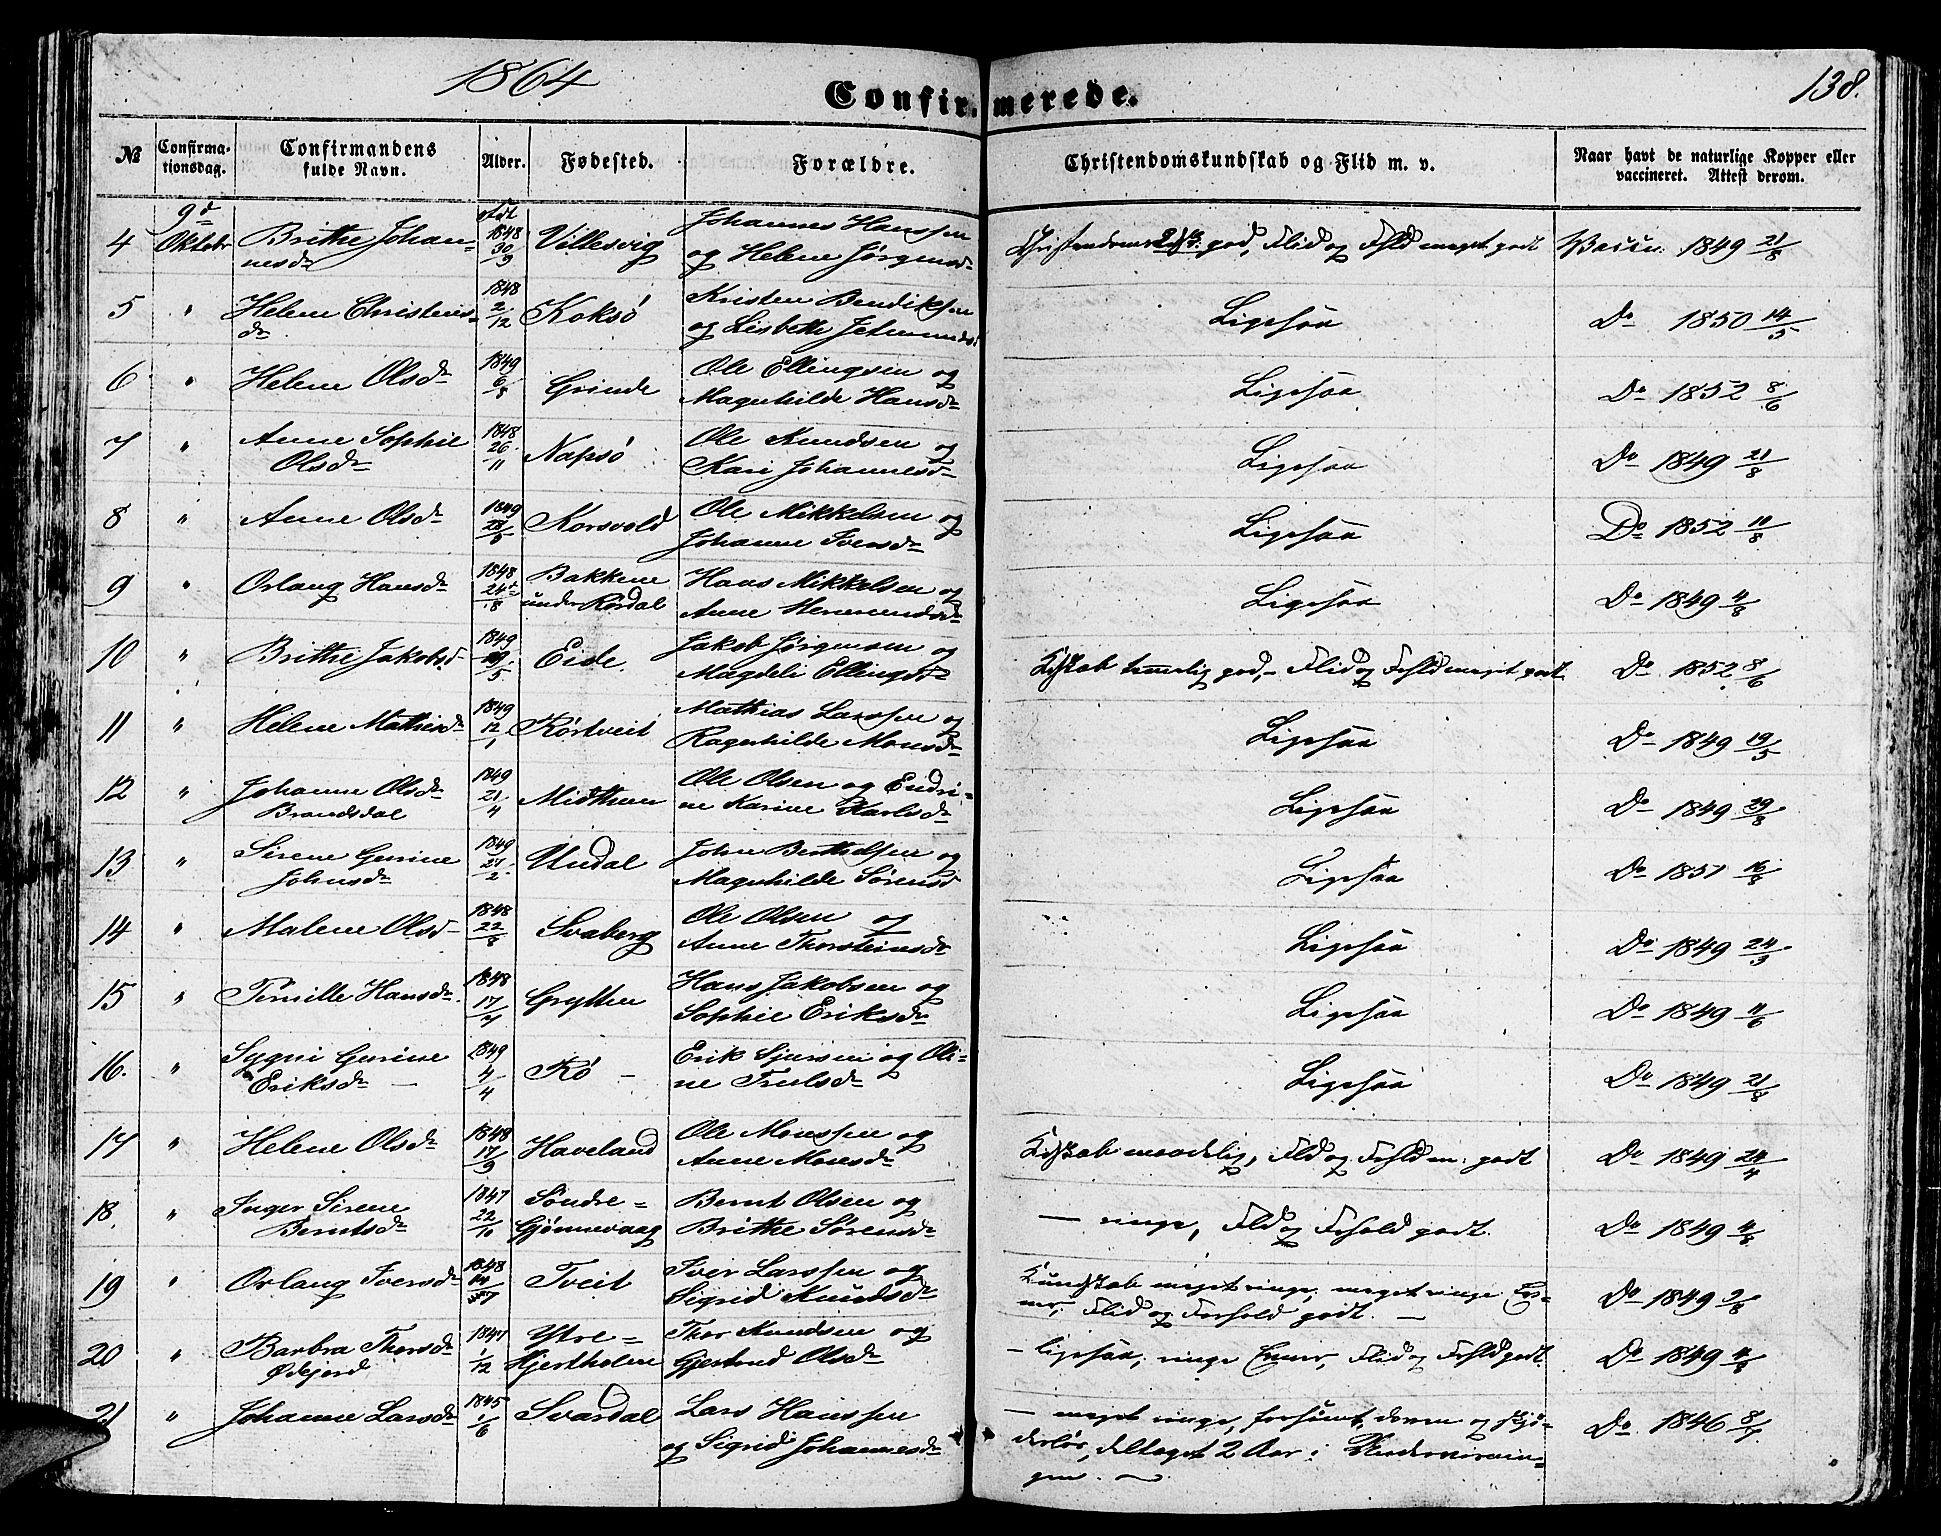 1864
Confirmerede.
138.
№ Confirmationsdag. Confirmandens fulde Navn. Alder. Fødested. Forældre. Christendomskundskab og Flid m. v. Naar havt de naturlige Kopper eller vaccineret. Attest derom.
4 9d Oktobr Brithe Johannesdr 1848 30/9 Villesvig Johannes Hanssen og Helene Jørgensdr god, Flid og Fhld meget godt Vaccn. 1849 21/8
5 " Helene Christensdr 1848 2/12 Koksö Kristen Bendiksen og Lisbeth Ligesaa Do 1850 14/5
6 " Helene Olsdr 1849 6/8 Grinde Ole Ellingsen og Magnhilde Hansdr Ligesaa Do 1852 8/6
7 " Anne Sophie Olsdr 1848 26/11 Napsö Ole Knudsen og Kari Johannesdr Ligesaa Do 1849 21/8
8 " Anne Olsdr 1849 28/5 Korsvold Ole Mikkelsen og Johanne Iversdr Ligesaa Do 1852 11/8
9 " Orlaug Hansdr 1848 24/8 Bakkene under Rördal Hans Mikkelsen og Anne Ligesaa Do 1849 4/8
10 " Brithe Jakobsd 1849 19/5 Eide Jakob Jørgensen og Magdeli Ellingsdr Kdskab temmelig god, - Flid og Fhld meget godt Do 1852 8/6
11 " Helene Mathisdr 1849 12/1 Körtveit Mathias Larssen og Ragnhilde Monsdr Ligesaa Do 1849 19/5
12 " Johanne Olsdr Brandsdal 1849 21/4 Midthun Ole Olsen og Endrine Karine Karlsdr Ligesaa Do 1849 29/8
13 " Sirene Gurine Johnsdr 1849 21/2 Undal John Berthelsen og Magnhilde Sörensd Ligesaa Do 1851 16/8
14 " Malene Olsd 1848 22/8 Svaberg Ole Olsen og Anne Thorsteinsdr Ligesaa Do 1849 24/9
15 " Pernille Hansdr 1848 17/7 Grytten Hans Jakobsen og Sophie Eriksdr Ligesaa Do 1849 11/6
16. " Sygni Gurine Eriksdr 1849 4/4 Kö Erik Sjursen og Oline Trulsdr Ligesaa Do 1849 21/8
17 " Helene Olsdr 1848 17/9 Haveland Ole Monssen og Anne Monsdr Kdskab maadelig, Flid og Fhld m. godt Do 1849 24/4
18. " Inger Sirene Berntsdr 1847 22/10 Söndre= Gjönnevaag Bernt Olsen og Brithe Sörensdr — ringe, Flid og Forhold godt. Do 1849 4/8
19 " Orlaug Iversdr 1848 Tveit Iver Larssen og Sigrid Knudsdr Kundskab meget ringe, meget ringe Evner, Flid og Forhold godt. — Do 1849 2/8
20 " Barbra Thorsdr Ødejord 1847 1/12 Ytre= Hjertholm Thor Knudsen og Gjertrud Olsdr — ligesaa, ringe Evner, Flid og Fhld godt. Do 1849 4/8
21 " Johanne Larsdr 1845 1/6 Svardal Lars Hanssen og Sigrid Johannesdr — meget ringe, forsømt, doven og skjøderlös, deltaget 2 Aar i Undervisningen. — Do 1846 8/7